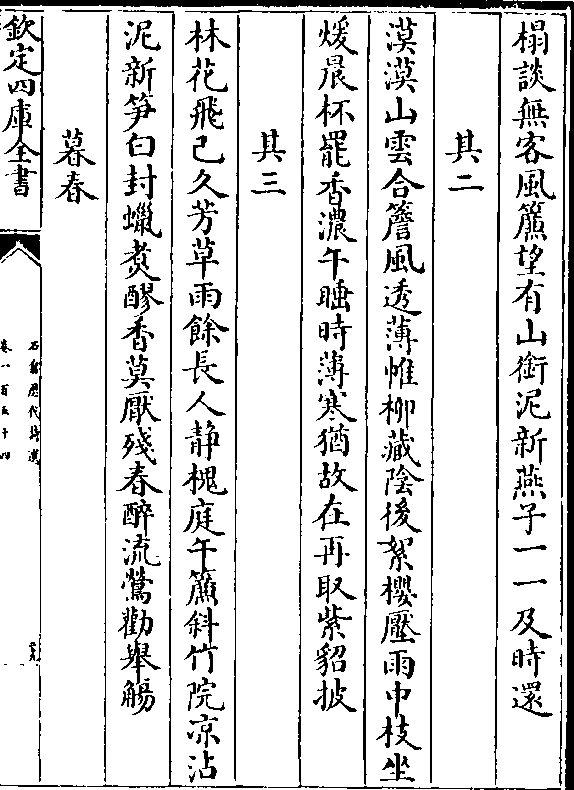 榻談無客風簾望有山銜泥新燕子一一及時還
其二
漠漠山雲合簷風透薄帷柳藏陰後絮櫻壓雨中枝坐
煖晨杯罷香濃午睡時薄寒猶故在再取紫貂披
其三
林花飛已久芳草雨餘長人静槐庭午簾斜竹院凉沾
泥新笋白封蠟煮醪香莫厭殘春醉流鶯勸舉觴
暮春
欽定四庫全書
石倉歴代詩選
卷一百五十四